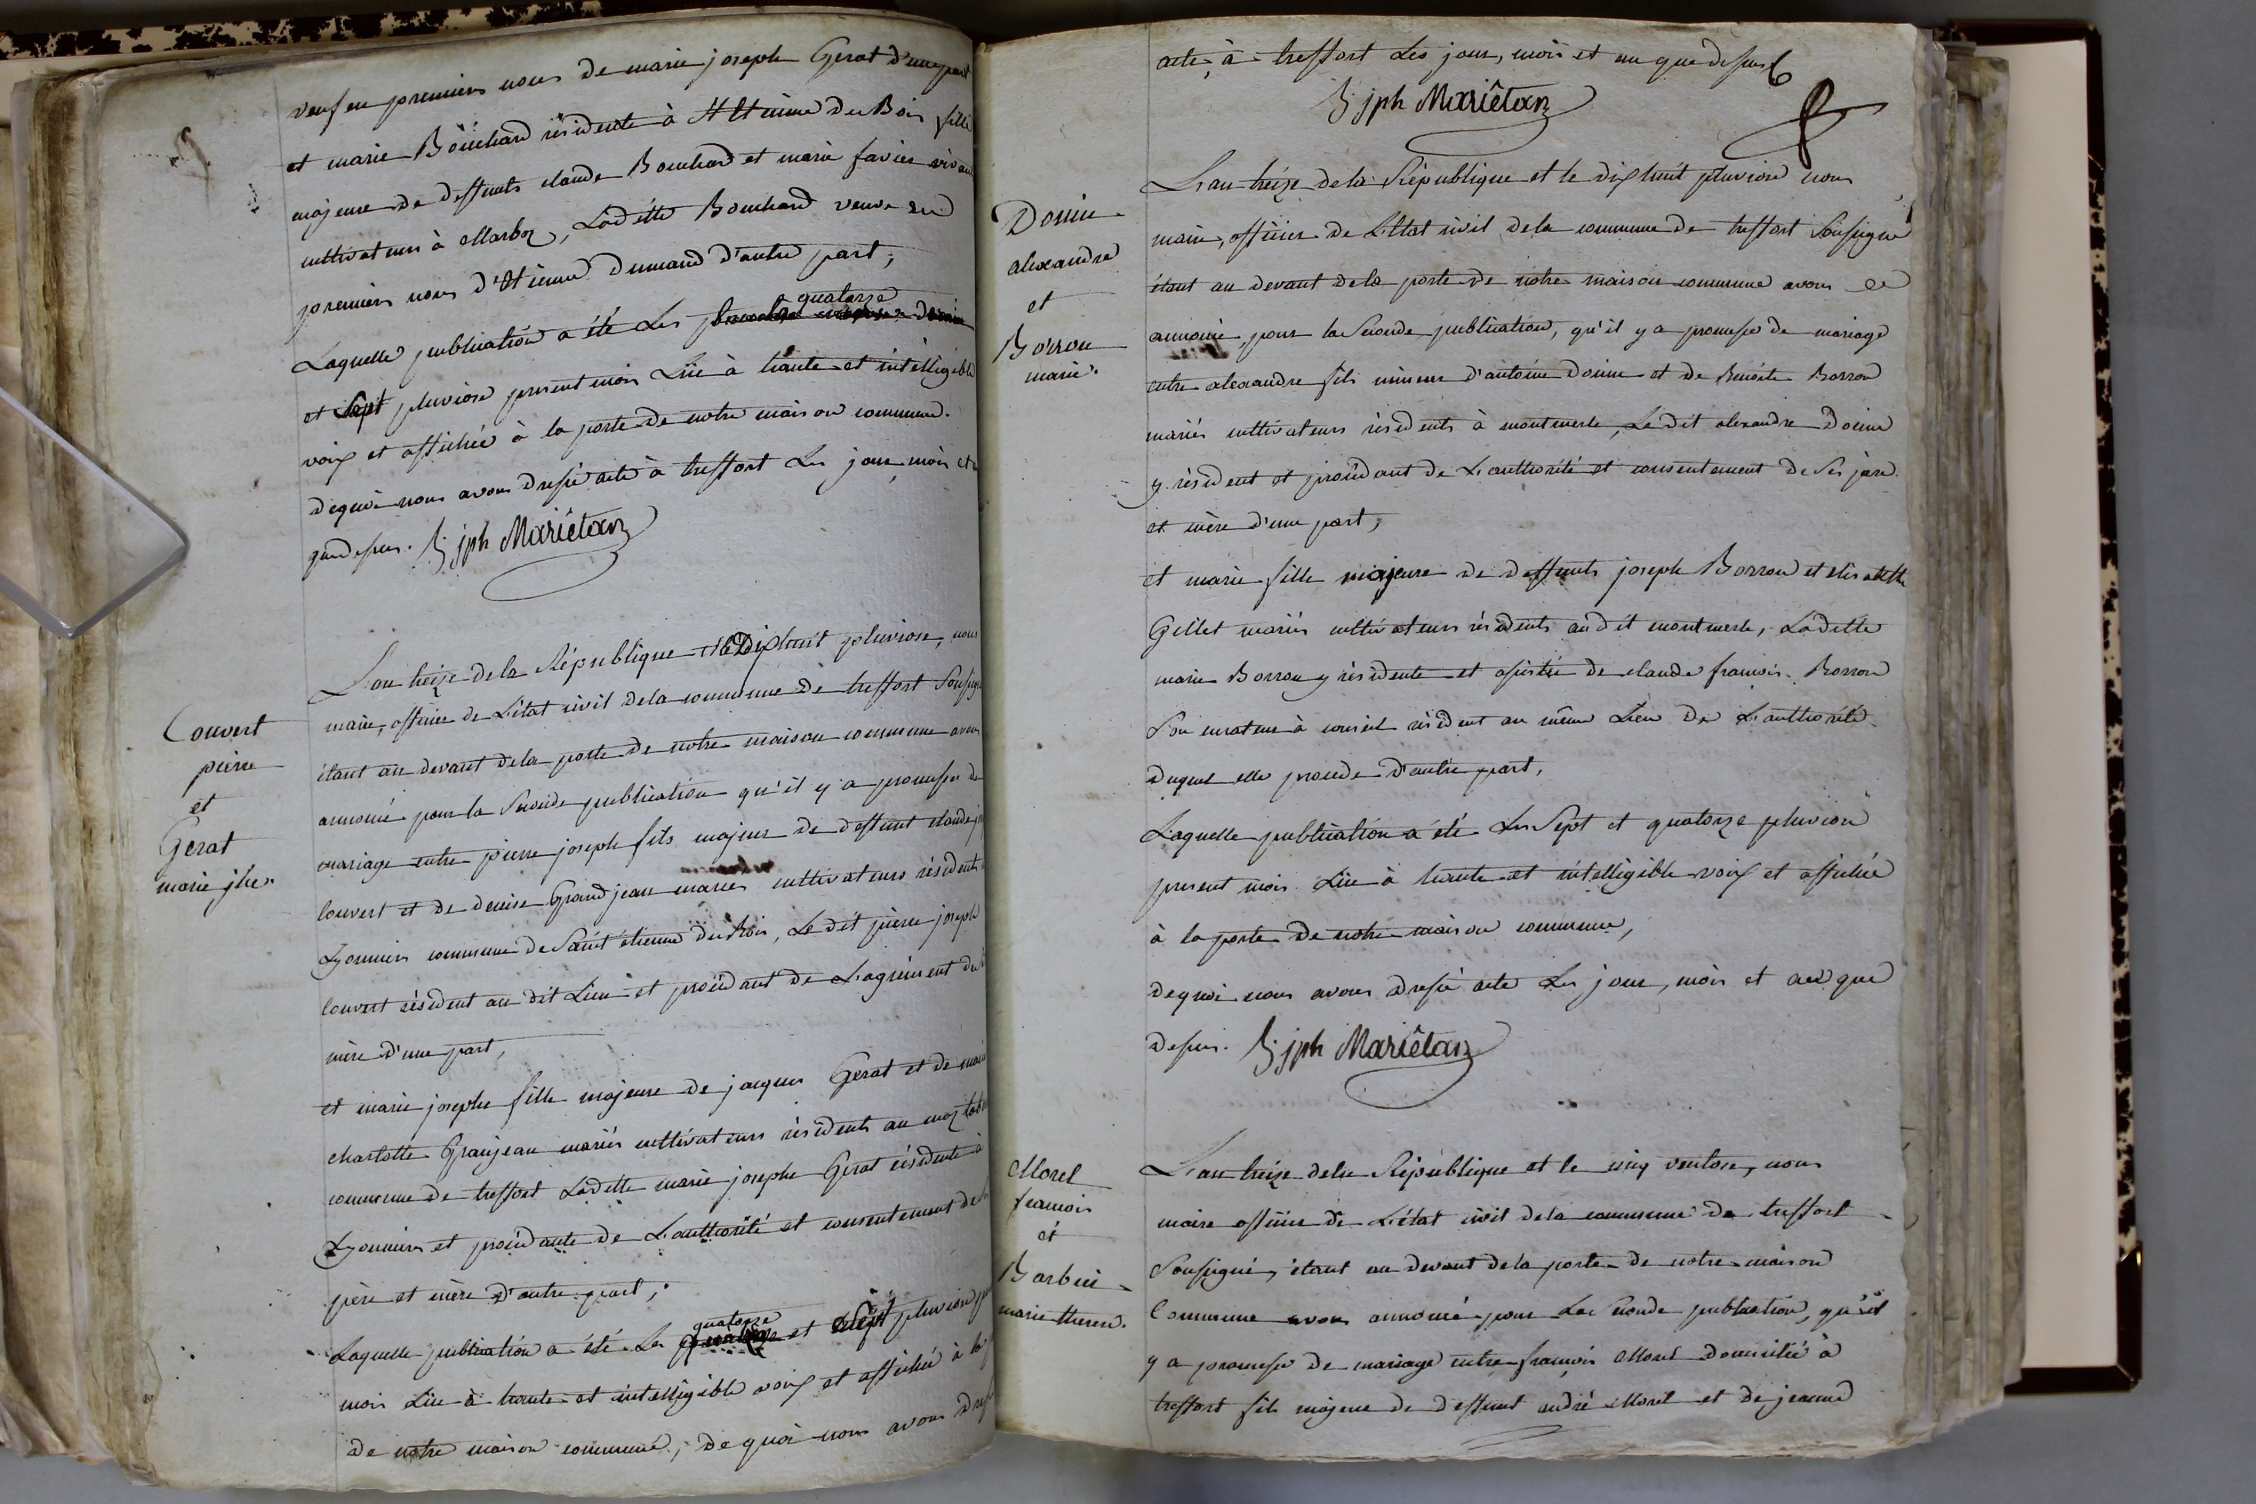 veuf en premieres noces de marie joseph Gerat d'une part
et marie Bouchard résidente à St Etienne du Bois fille
majeure de deffunts claude Bouchard et marie favier vivant
cultivateurs à Marboz, Ladette Bouchard veuve en
premieres noces d'Etienne Dumand d'autre part,
Laquelle publication a été Les quatorze
et sept pluviose present mois Lüe à haute et intelligible
voix et affichée à la porte de notre maison commune.
dequoi nous avons dressé acte à treffort Les jour, mois et
que dessus. B. jph Mariêtan
Couvert
pierre
et
Gerat
marie jhe.
L'an treize de la République et le Dixhuit pluviose, nous
maire, officier de L'état civil dela commune de treffort Soussigné
étant au devant dela porte de notre maison commune avons
annoncé pour la Seconde publication qu'il y a promesse de
mariage entre pierre joseph fils majeur de deffunt claude j
Couvert et de denise Grandjean mariés cultivateurs résidents
Lyonniers commune de Saint étienne du Bois, Le dit pierre joseph
Couvert résident au dit Lieu et procédant de L'agrément de
mère d'une part,
et marie josephe fille majeure de jacques Gerat et de marie
charlotte Granjean mariés cultivateurs résidents au
commune de treffort Ladette marie josephe Gerat résidente à
Lyonniers et procédante de L'authorité et consentement de
père et mère d'autre part,
Laquelle publication a été Les quatorze et Sept pluviose
mois Lüe à haute et intelligible voix et affichée à la
de notre maison commune, de quoi nous avons dressé
acte, à treffort Les jour, mois et an que dessus
B. jph Mariêtan
Douin
alexandre
et
Borron
marie.
L'an treize dela République et le dixhuit pluviose nous
maire, officier de L'Etat civil dela commune de treffort Soussigné
étant au devant dela porte de notre maison commune avons
annoncé, pour la Seconde publication, qu'il y a promesse de mariage
entre alexandre fils mineur d'antoine Douin et de Benoite Borron
mariés cultivateurs résidents à montmerle, Le dit alexandre Douin
y résident et procédant de L'authorité et consentement de Ses père
et mère d'une part,
et marie fille majeure de deffunts joseph Borron et elisabeth
Gillet mariés cultivateurs résidents audit montmerle, Ladette
marie Borron y résidente et assistée de claude francois Borron
Son curateur à conseil résident au même Lieu De L'authorité
Duquel elle procede d'autre part,
Laquelle publication a été Les Sept et quatorze pluviose
present mois Lüe à haute et intelligible voix et affichée
à la porte de notre maison commune,
dequoi nous avons dressé acte Les jour, mois et an que
dessus. B. jph Mariêtan
Morel
francois
et
Barbier
marie therese.
L'an treize dela République et le cinq ventose, nous
maire officier de L'état civil dela commune de treffort
Soussigné, étant au devant dela porte de notre maison
Commune avons annoncé pour La Seconde publication, qu'il
y a promesse de mariage entre francois Morel domicilié à
treffort fils majeur de deffunt andré Morel et de jeanne